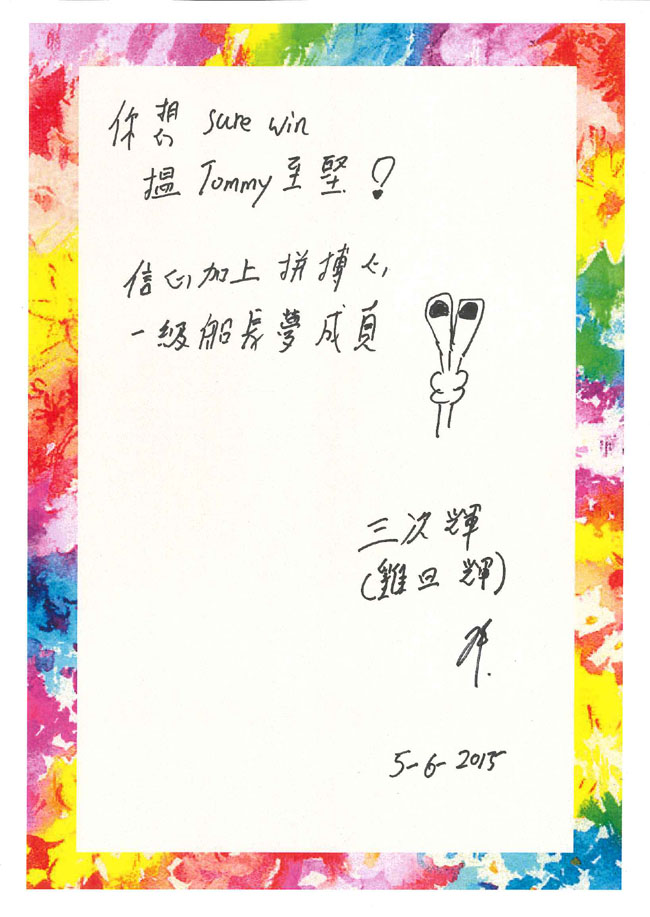 你想 sure win
搵 Tommy 至堅！
信心加上拼搏心
一級船長夢成真
三次輝
(雞旦輝)
5-6-2015